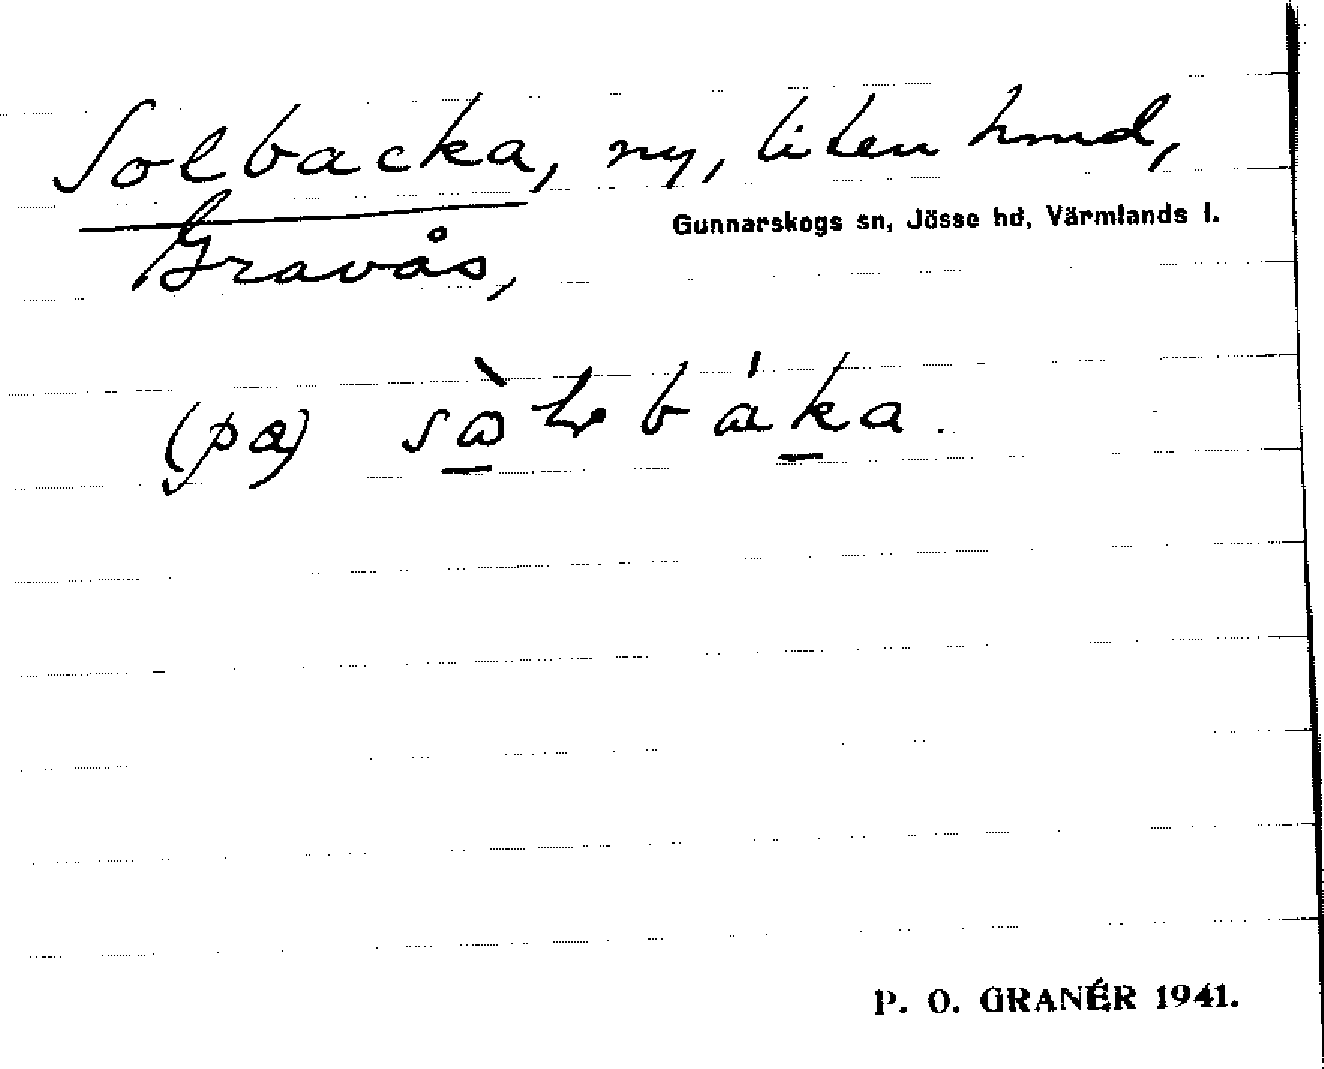 Solbacka, ny, liten hmd,
Gunnarskogs sn, Jösse hd, Värmlands l.
Gravås,
(pa)
P. O. GRANÉR 1941.